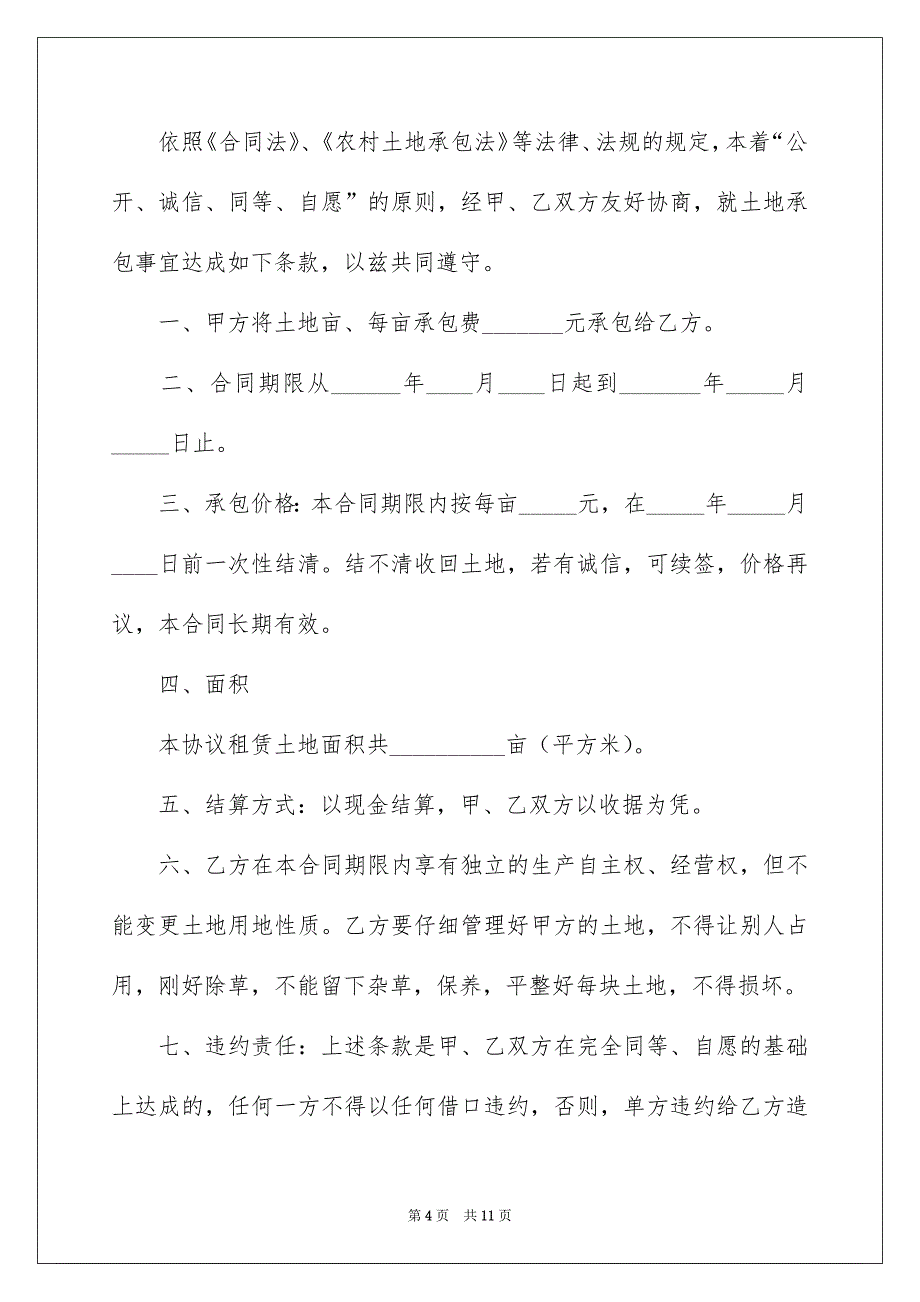 依照《合同法》、《农村土地承包法》等法律、法规的规定，本着“公
开、诚信、同等、自愿”的原则，经甲、乙双方友好协商，就土地承
包事宜达成如下条款，以兹共同遵守。
一、甲方将土地亩、每亩承包费_______元承包给乙方。
二、合同期限从______年____月____日起到_______年_____月
_____日止。
三、承包价格：本合同期限内按每亩_____元，在_____年_____月
____日前一次性结清。结不清收回土地，若有诚信，可续签，价格再
议，本合同长期有效。
四、面积
本协议租赁土地面积共__________亩（平方米）。
五、结算方式：以现金结算，甲、乙双方以收据为凭。
六、乙方在本合同期限内享有独立的生产自主权、经营权，但不
能变更土地用地性质。乙方要仔细管理好甲方的土地，不得让别人占
用，刚好除草，不能留下杂草，保养，平整好每块土地，不得损坏。
七、违约责任：上述条款是甲、乙双方在完全同等、自愿的基础
上达成的，任何一方不得以任何借口违约，否则，单方违约给乙方造
第 4 页 共 11 页